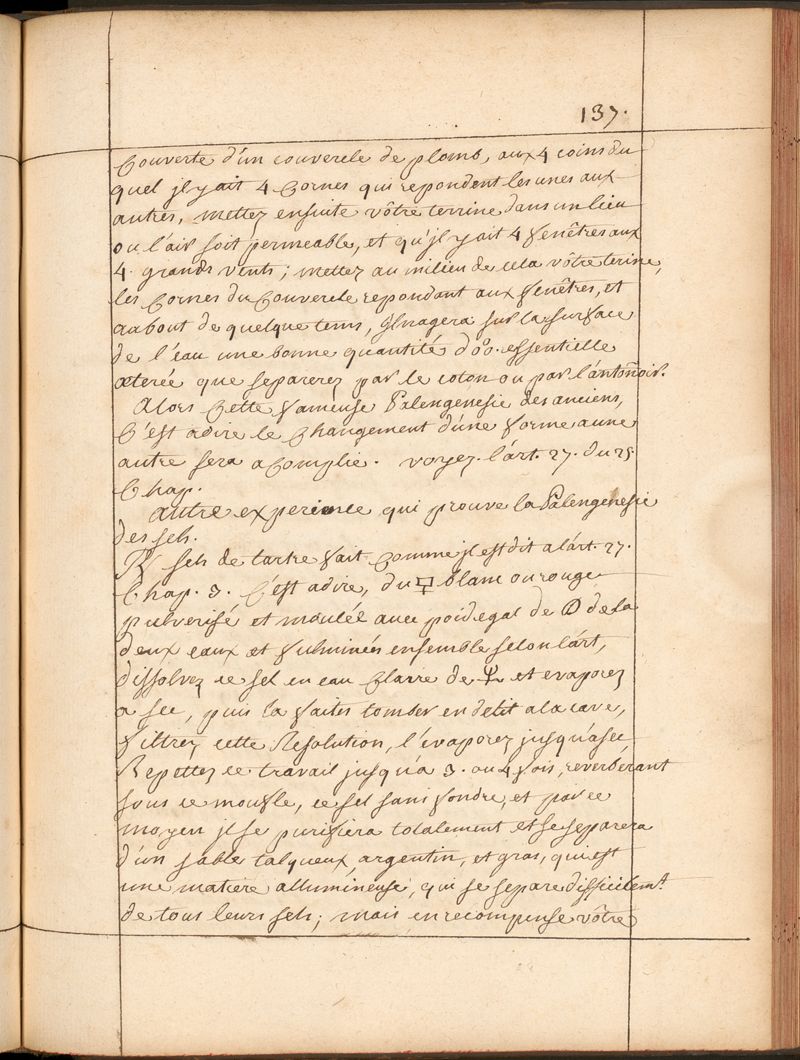 137.
Couverte d'un couvercle de plomb, aux 4 coins du
quel jl y ait 4 Cornes qui repondent les unes aux
autres, mettez ensuite vôtre terrine dans un lieu
ou l'air soit permeable, et qu'jl y ait 4 fenêtres aux
4. grands vents; mettez au milieu de cela vôtre terine,
les Cornes du Couvercle repondant aux fenêtres, et
au bout de quelque tems, jl nagera sur la surface
de l'eau une bonne quantité d'o°o. essentielle
æterée que separerez par le coton ou par l'antoñoir.
Alors Cette fameuse Palengenesie des anciens,
C'est adire le Changement d'une forme a une
autre sera acomplie. voyez. l'art. 27. du 25
Chap.
autre experience qui prouve la Palengenesie
des sels.
℞ sels de tartre fait comme jl est dit a l'art. 27.
Chap. 3. C'est adire, du 🜿 blanc ou rouge
pulverisé et moulée avec poid egal de 🜕 de la
deux eaux et fulminés ensemble selon l'art,
dissolvez ce sel en eau Claire de et evaporez
a sec, puis la faites tomber en delit a la cave,
filtrez cette Resolution, l'evaporez jusqu'a sec
Repettez ce travail jusqu'a 3. ou 4 fois, reverbérant
sous ce moufle, ce sel sans fondre, et par ce
moyen jl se purifiera totalement et se separera
d'un sable talqueux, argentin, et gras, qui est
une matiere allumineuse, qui se separe difficilem.t
de tous leurs sels; mais en recompense vôtre